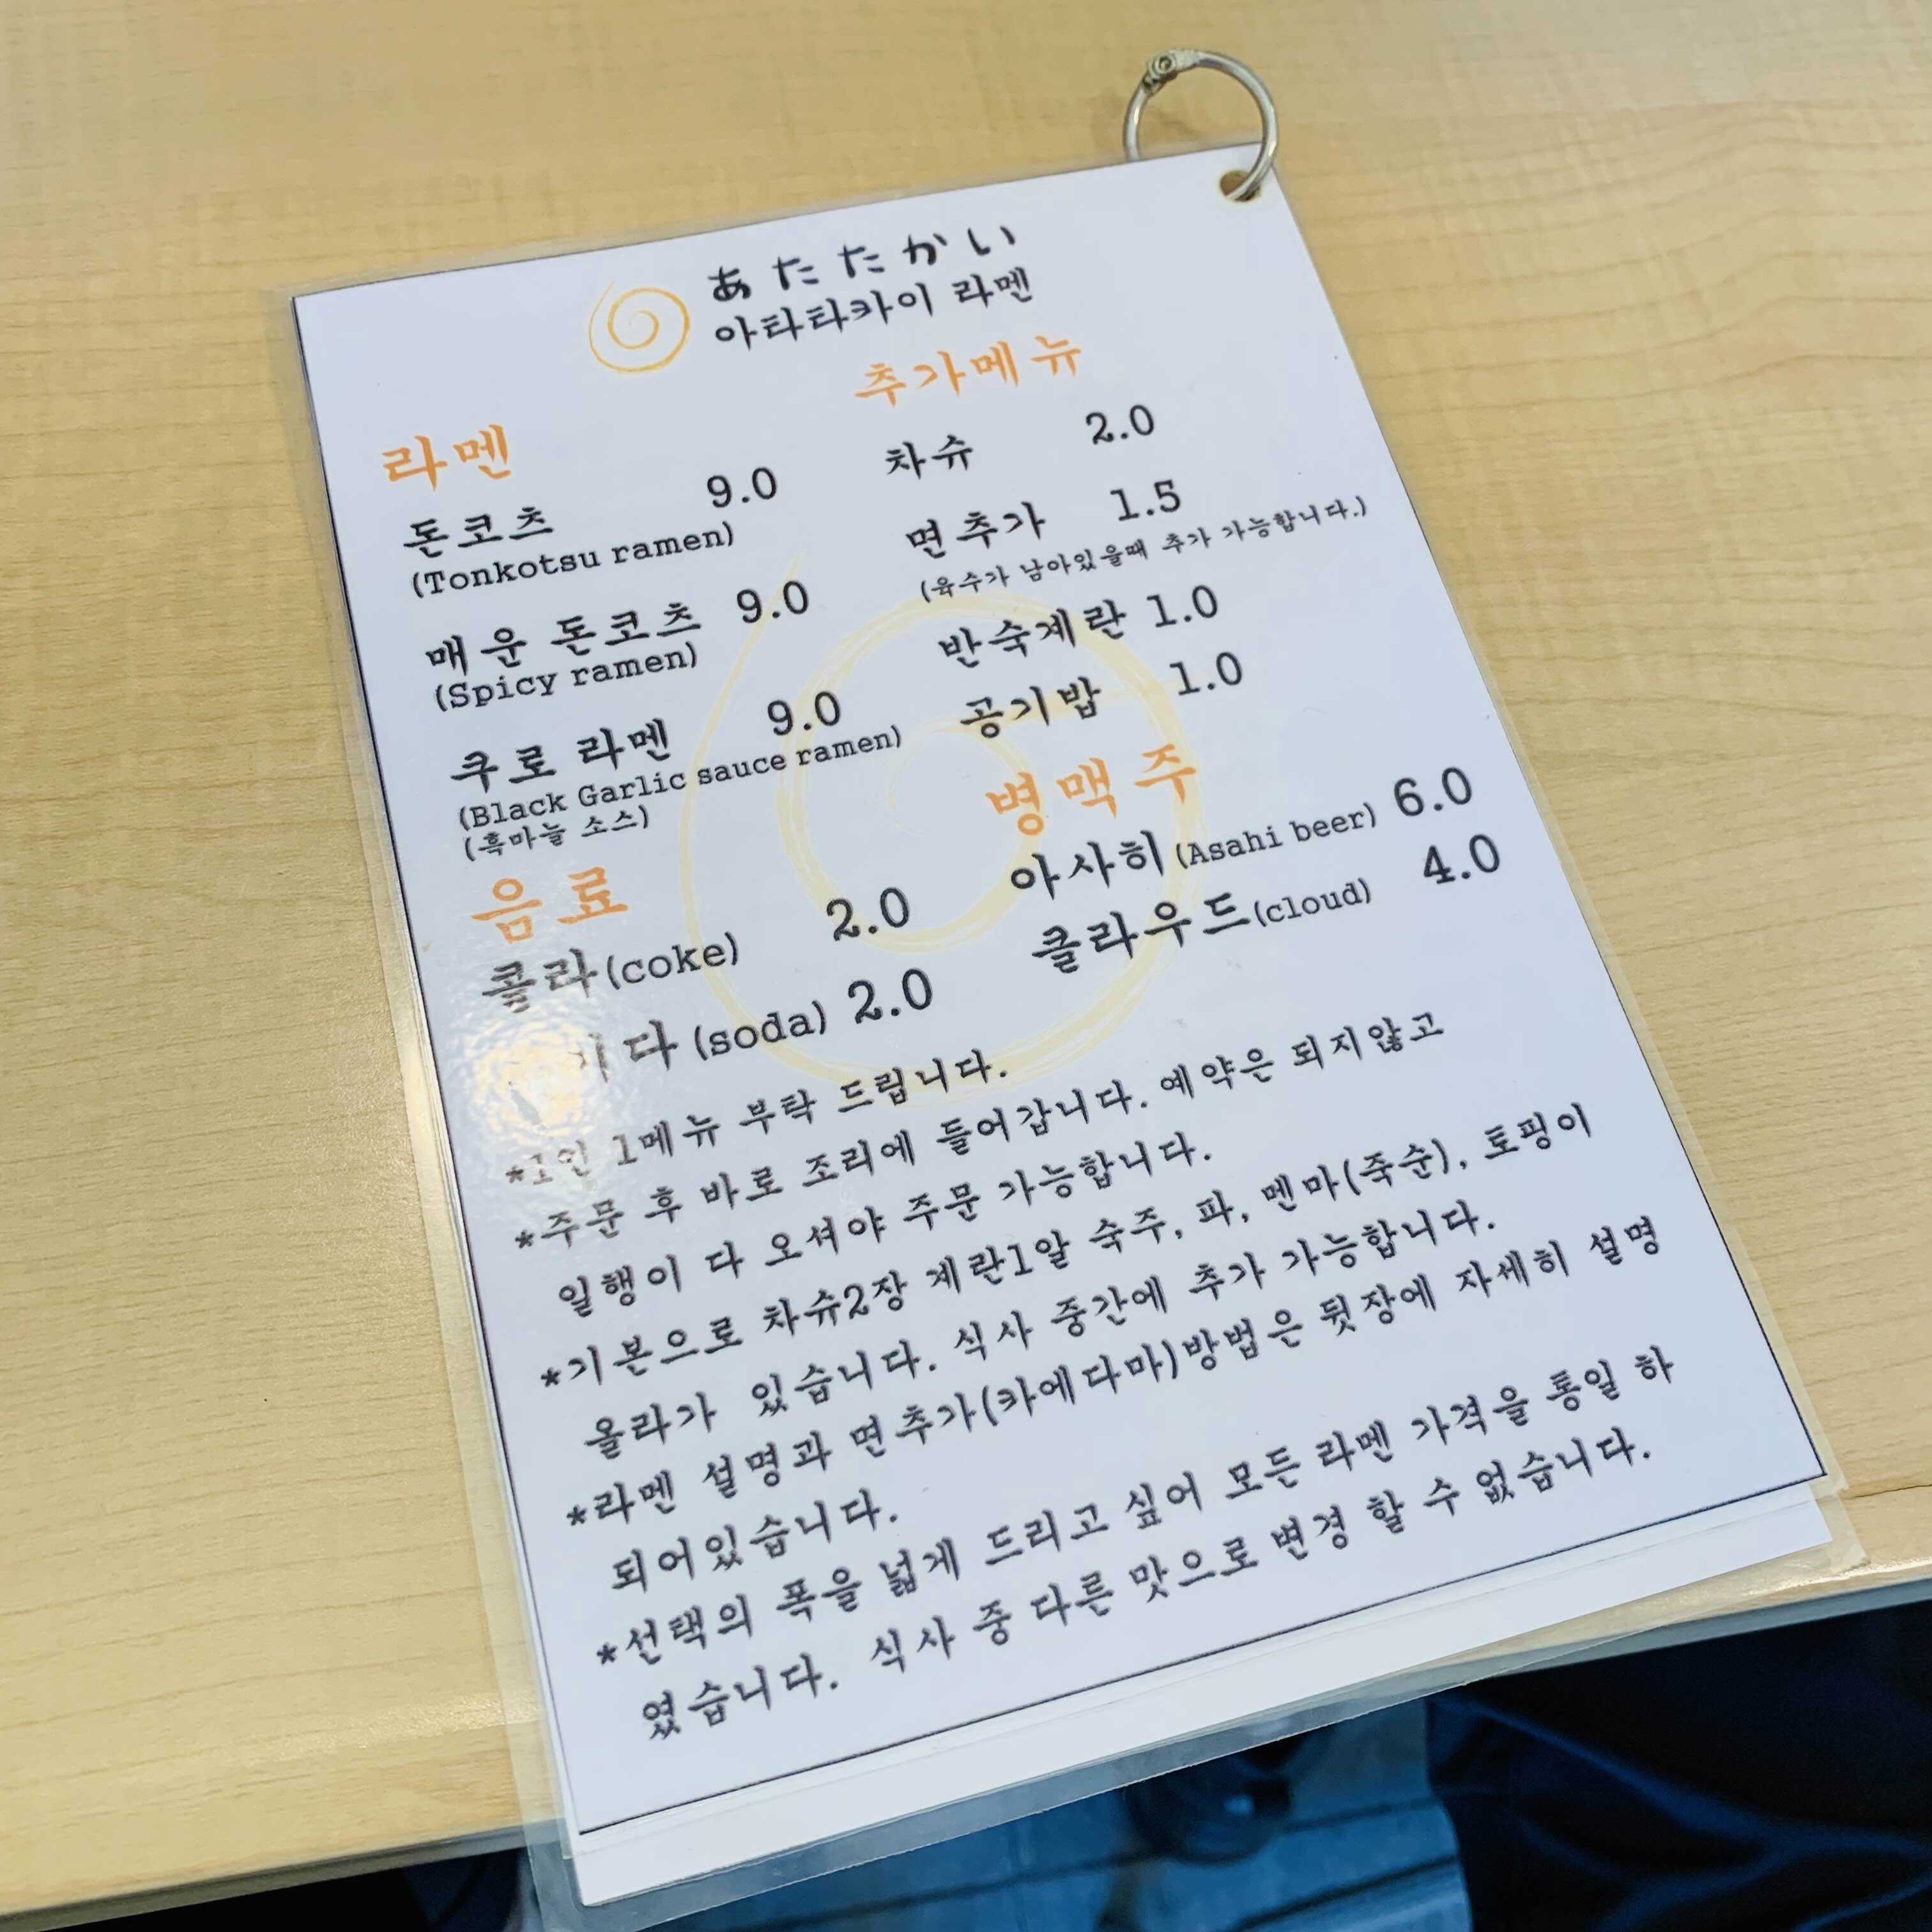 あたたかい
아타타카이 라멘
라멘
돈코츠 9.0
(Tonkotsu ramen)
매운 돈코츠 9.0
(Spicy ramen)
쿠로 라멘 9.0
(Black Garlic sauce ramen)
(흑마늘 소스)
음료
콜라(coke) 2.0
(soda) 2.0
추가메뉴
차슈 2.0
면추가 1.5
(육수가 남아있을때 추가 가능합니다.)
반숙계란 1.0
공기밥 1.0
병맥주
아사히(Asahi beer) 6.0
클라우드(cloud) 4.0
*1인 1메뉴 부탁 드립니다.
*주문 후 바로 조리에 들어갑니다. 예약은 되지않고
일행이 다 오셔야 주문 가능합니다.
*기본으로 차슈2장 계란1알 숙주, 파, 멘마(죽순), 토핑이
올라가 있습니다. 식사 중간에 추가 가능합니다.
*라멘 설명과 면추가(카에다마)방법은 뒷장에 자세히 설명
되어있습니다.
*선택의 폭을 넓게 드리고 싶어 모든 라멘 가격을 통일 하
였습니다. 식사 중 다른 맛으로 변경 할 수 없습니다.